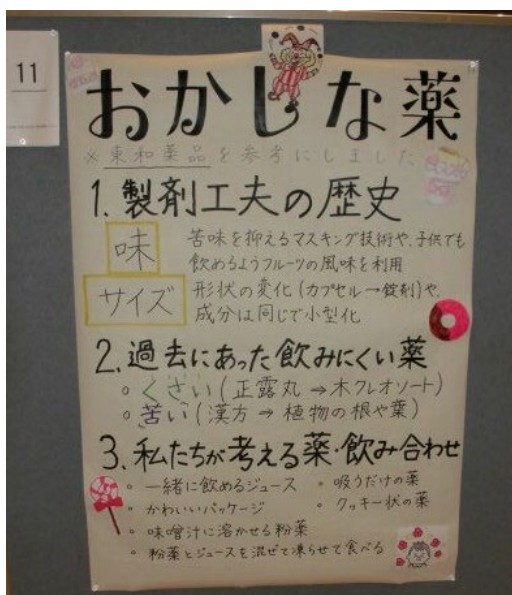 11
おかしな薬
※東和薬品を参考にしました
1.製剤工夫の歴史
味
苦味を抑えるマスキング技術や、子供でも
飲めるようフルーツの風味を利用
サイズ
形状の変化(カプセル→錠剤)や、
成分は同じで小型化
2.過去にあった飲みにくい薬
。くさい(正露丸→木クレオソート)
。苦い(漢方→植物の根や葉)
3.私たちが考える薬・飲み合わせ
。一緒に飲めるジュース
。吸うだけの薬
。かわいいパッケージ
。クッキー状の薬
。味噌汁に溶かせる粉薬
。粉薬とジュースを混ぜて凍らせて食べる